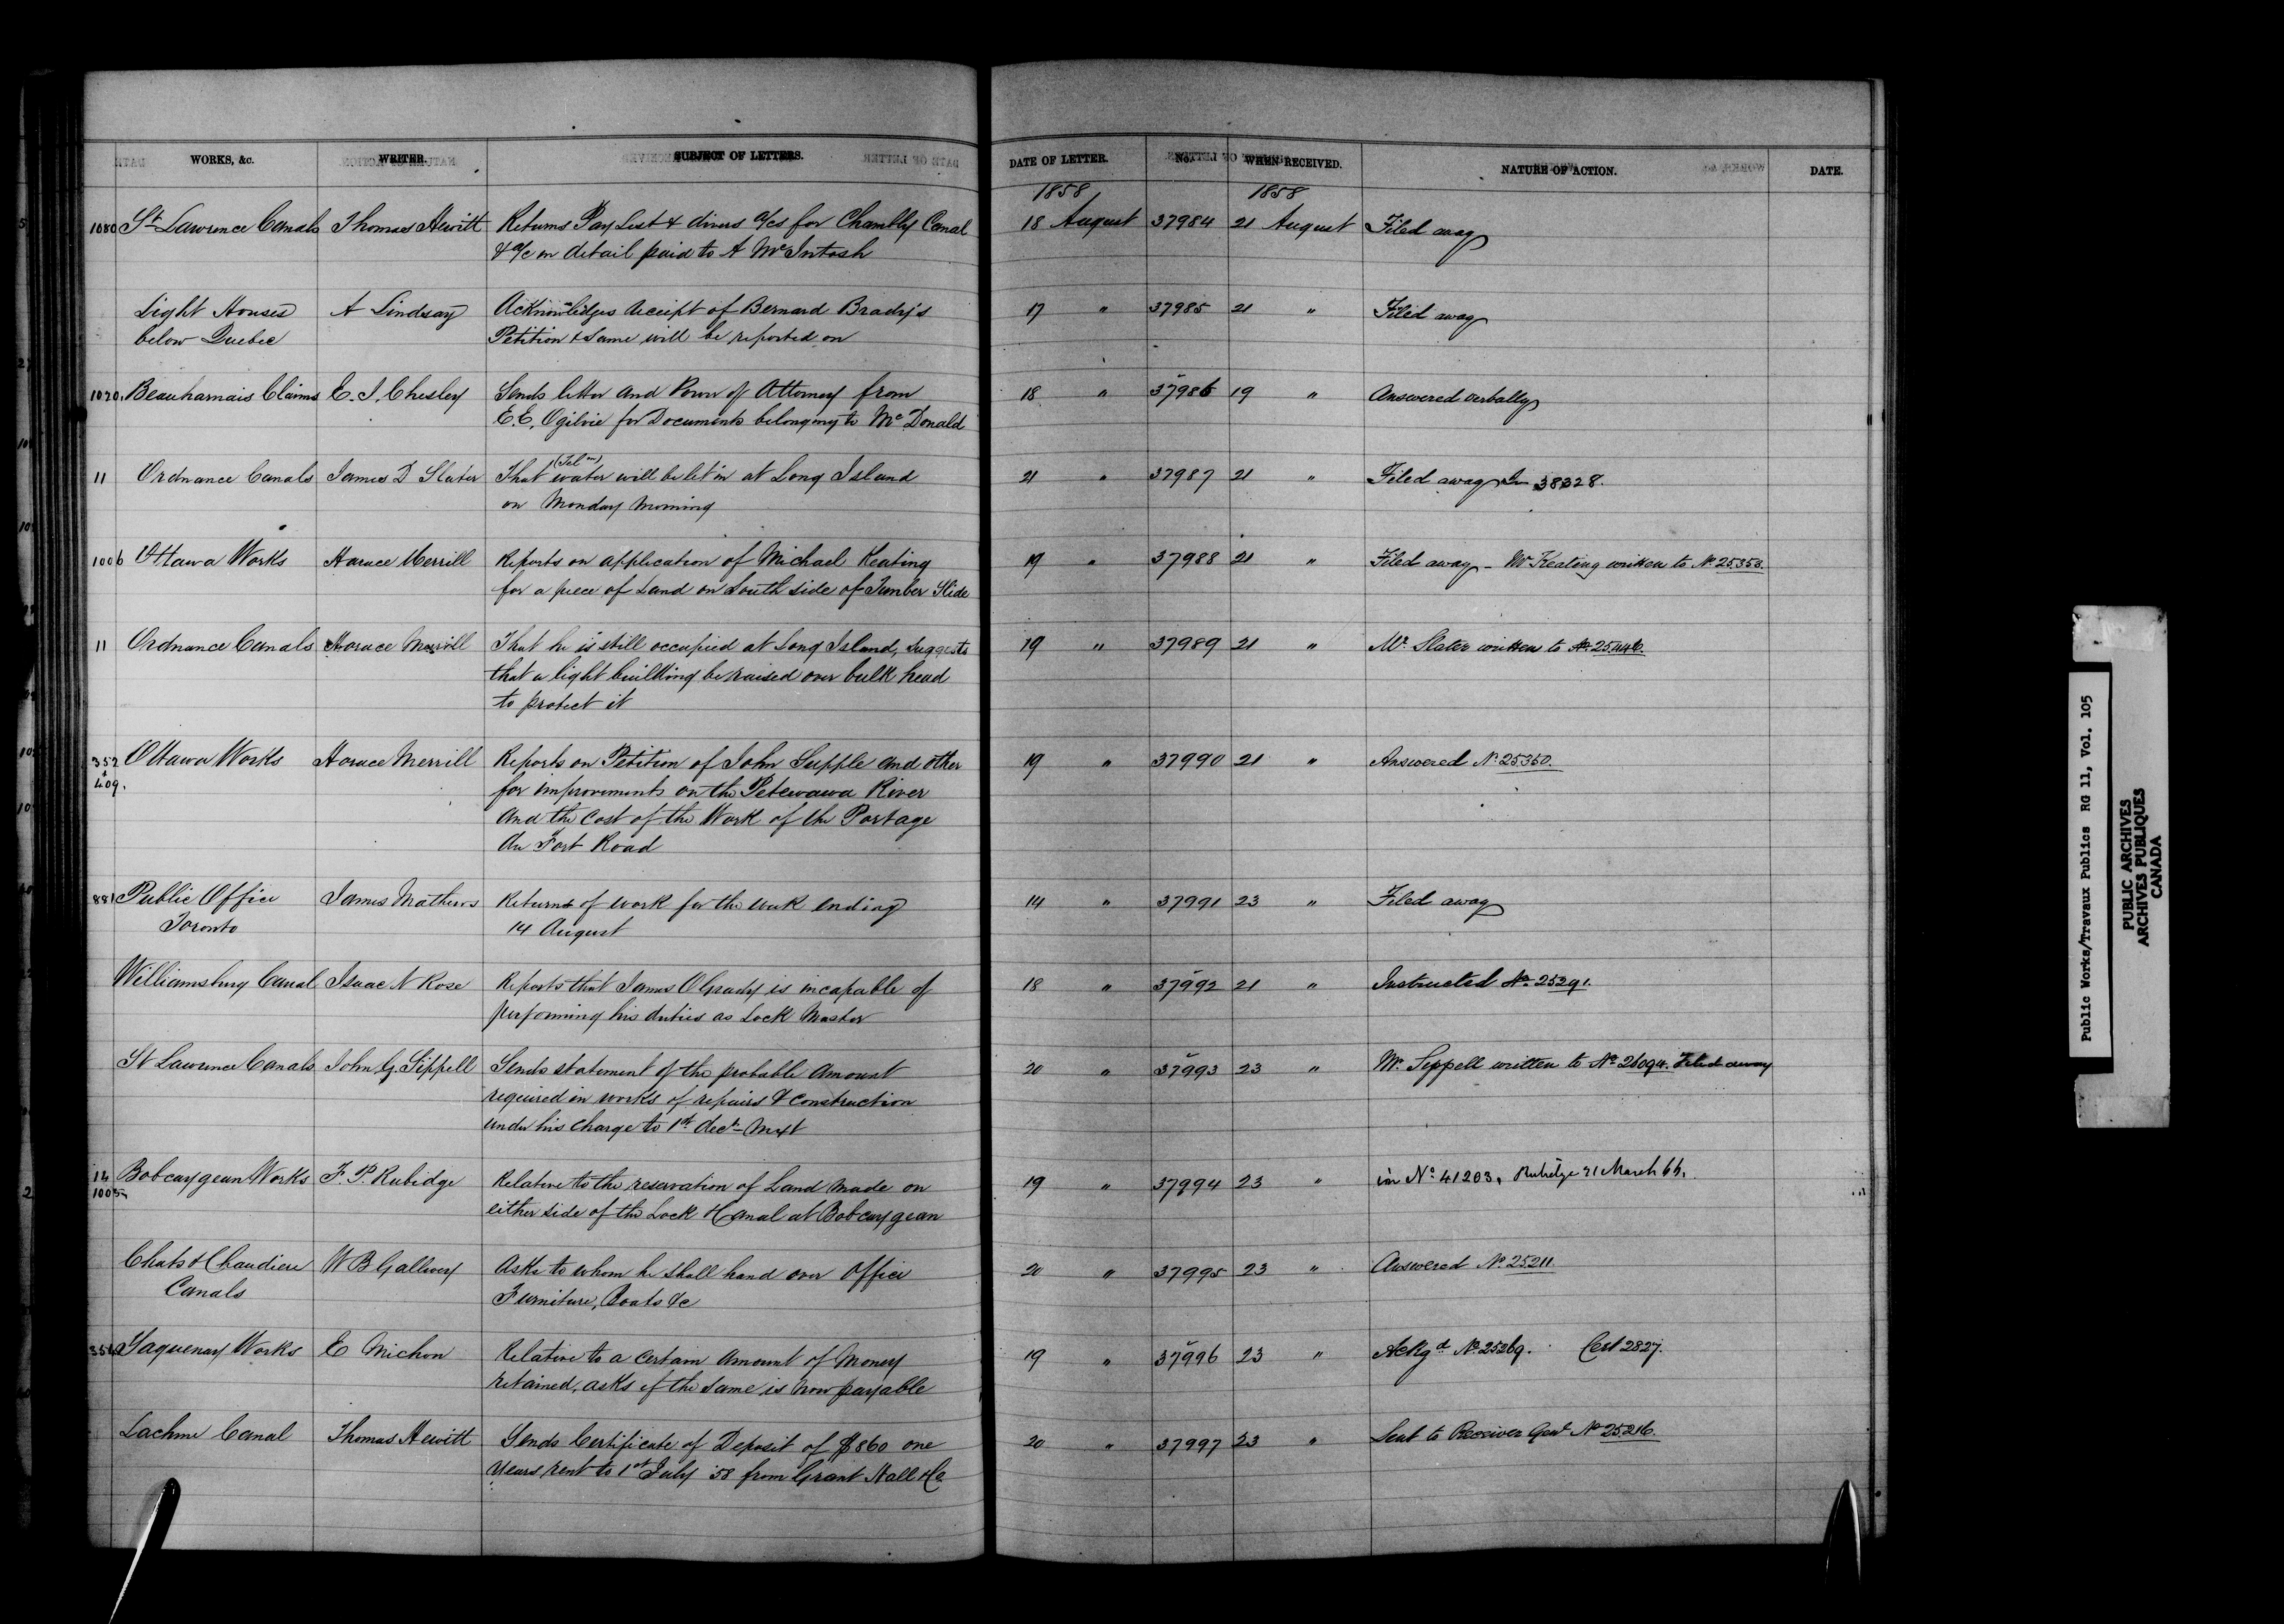 WORKS, &c. WRITER. SUBJECT OF LETTERS. DATE OF LETTER. No. WHEN RECEIVED. NATURE OF ACTION. DATE.
1858 1858
1080 St Lawrence Canals Thomas Hewitt Returns Pay List & divers a/cs for Chambly Canal 18 August 37984 21 August Filed away
& a/c in detail paid to A McIntosh
Light Houses A Lindsay Acknowledges receipt of Bernard Brady's 17 " 37985 21 " Filed away
below Quebec Petition & Same will be reported on
1020. Beauharnais Claims E. I. Chesley Sends letter and Power of Attorney from 18 " 37986 19 " Answered verbally
E.E. Ogilvie for Documents belonging to McDonald
11 Ordnance Canals James D Slater That (Tel m) water will be let in at Long Island 21 " 37987 21 " Filed away In 38328.
on Monday Morning
1006 Ottawa Works Horace Merrill Reports on application of Michael Keating 19 " 37988 21 " Filed away - Mr Keating written to No 25353.
for a piece of Land on South side of Timber Slide
11 Ordnance Canals Horace Merrill That he is still occupied at Long Island, Suggests 19 " 37989 21 " Mr Slater written to No 25446.
that a light building be raised over bulk head
to protect it
352 Ottawa Works Horace Merrill Reports on Petition of John Supple and other 19 " 37990 21 " Answered No 25350.
& 409. for improvements on the Petewawa River
and the Cost of the Work of the Portage
du Fort Road
881 Public Office James Mathews Returns of work for the week ending 14 " 37991 23 " Filed away
Toronto 14 August
Williamsburg Canal Isaac N Rose Reports that James OGrady is incapable of 18 " 37992 21 " Instructed No 25291.
performing his duties as Lock Master
St Lawrence Canals John G. Sippell Sends statement of the probable Amount 20 " 37993 23 " Mr Sippell written to No 26094. Filed away
required in works of repairs & Construction
under his charge to 1st decr Next
14 Bobcaygean Works F. P. Rubidge Relative to the reservation of Land made on 19 " 37994 23 " in No 41203, Rubidge 21 March 66.
1005 either side of the Lock & Canal at Bobcaygean
Chats & Chaudiere W B Gallwey Asks to whom he shall hand over Office 20 " 37995 23 " Answered No 25211.
Canals Furniture, Boats &c
Saguenay Works E Michon Relative to a certain Amount of Money 19 " 37996 23 " Ackgd No 25269. Cert 2827.
retained, asks if the same is now payable
Lachine Canal Thomas Hewitt Sends Certificate of Deposit of $860 one 20 " 37997 23 " Sent to Receiver Genl No 25216.
Years rent to 1st July '58 from Grant Hall & Co
Public Works/Travaux Publics RG 11, Vol. 105
PUBLIC ARCHIVES
ARCHIVES PUBLIQUES
CANADA